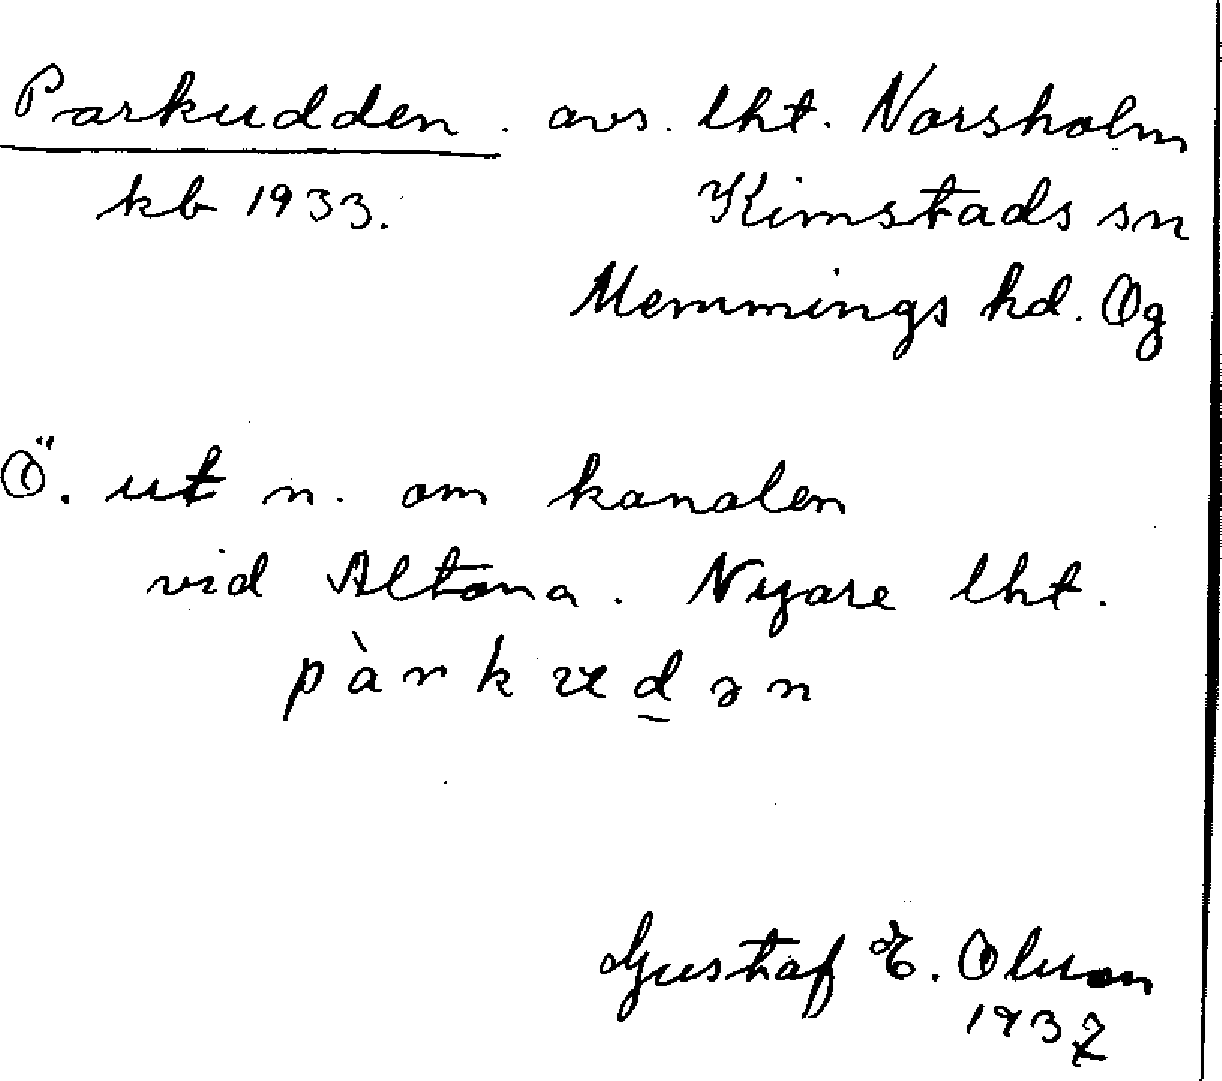 Parkudden. avs. lht. Norsholm
kb 1933. Kimstads sn
Memmings hd. Ög
Ö. ut n. om kanalen
vid Altona. Nyare lht.
pàrkudən
Gustaf E. Olsson
1937